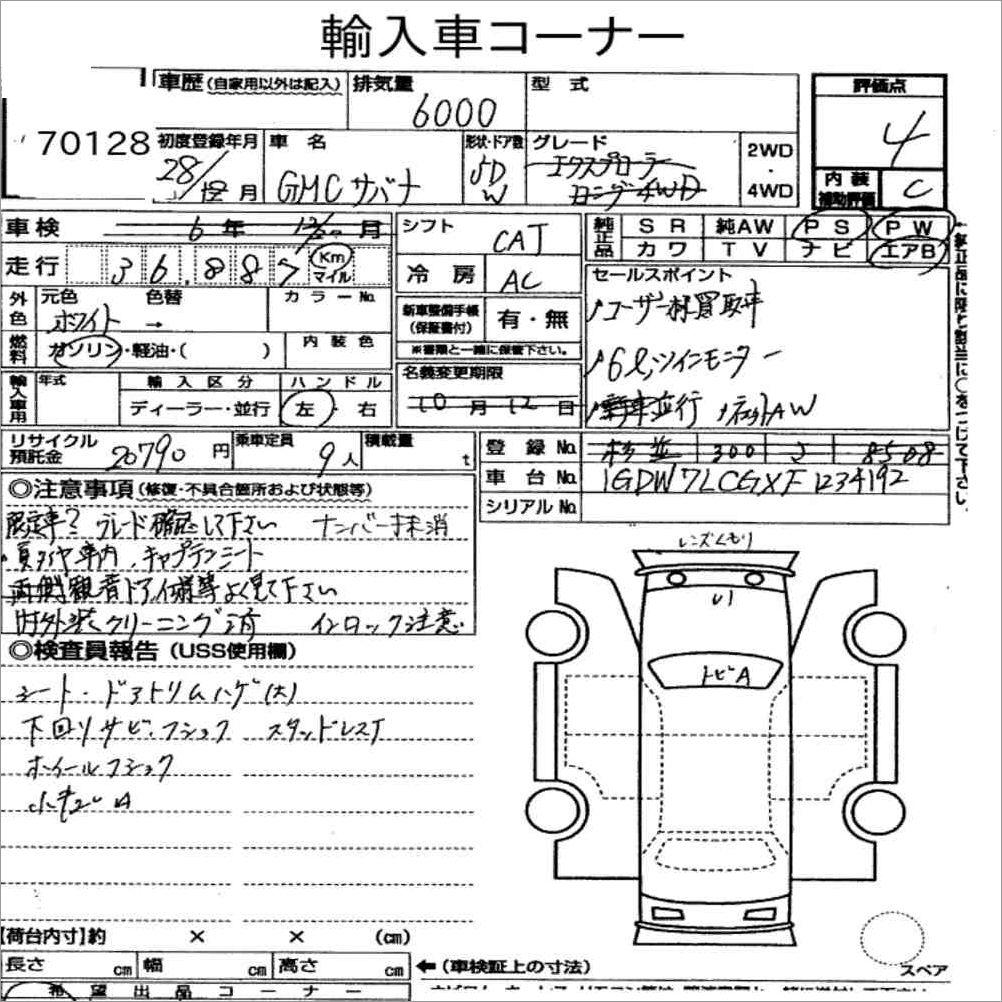 輸入車コーナー
70128
車歴 (自家用以外は記入) 排気量 6000 型式 評価点 4
初度登録年月 28/ 月 車名 GMC サバナ 形状・ドア数 5D W グレード エクスプローラー 4WD 2WD・4WD
内装補助評価 C
車検 6年 月 シフト CAT 純正品 SR 純AW PS PW
カワ TV ナビ エアB
走行 36,887 Km マイル 冷房 AC セールスポイント
外色 元色 色替 カラーNo. 新車整備手帳(保証書付) 有・無 ユーザー様買取車
ホワイト → ※書類と一緒に保管下さい。
燃料 ガソリン・軽油・( ) 内装色 名義変更期限 6ℓ,ツインモニター
輸入車用 年式 輸入区分 ハンドル 10月12日 並行 AW
ディーラー・並行 左・右
リサイクル預託金 20790円 乗車定員 9人 積載量 t 登録No. 300 8508
車台No. 1GDW7LCGXF1234192
シリアルNo.
◎注意事項 (修復・不具合箇所および状態等)
限定車? グレード確認して下さい ナンバー抹消
夏タイヤ車内、キャプテンシート
よく見て下さい
内外装クリーニング済 インロック注意
◎検査員報告 (USS使用欄)
シート・ドアトリムハゲ(大)
下回りサビ・フショク スタッドレスT
ホイールフショク
小キズ、A
レンズくもり
トビA
【荷台内寸】約 × × (cm)
長さ cm 幅 cm 高さ cm ←(車検証上の寸法) スペア
希望出品コーナー